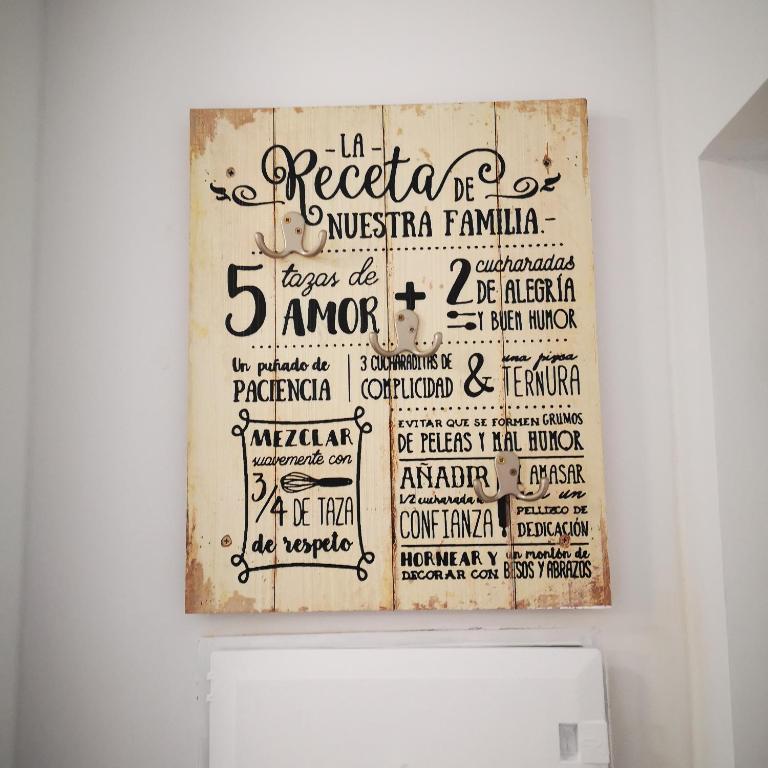 -LA-
Receta DE
NUESTRA FAMILIA.-
5 tazas de AMOR
+
2 cucharadas
DE ALEGRÍA
Y BUEN HUMOR
Un puñado de
PACIENCIA
3 CUCHARADITAS DE
COMPLICIDAD
&
una pizca
TERNURA
MEZCLAR
suavemente con
3/4 DE TAZA
de respeto
EVITAR QUE SE FORMEN GRUMOS
DE PELEAS Y MAL HUMOR
AÑADIR
1/2 cucharada
CONFIANZA
AMASAR
un
PELLIZCO DE
DEDICACIÓN
HORNEAR Y
DECORAR CON
un montón de
BESOS Y ABRAZOS